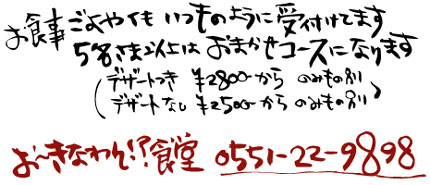 お食事ごよやくも いつものように受付けてます
5名さま以上は おまかせコースになります
(デザートつき ¥2800-から のみもの別
デザートなし ¥2500-から のみもの別)
お〜きなわん!?食堂 0551-22-9898